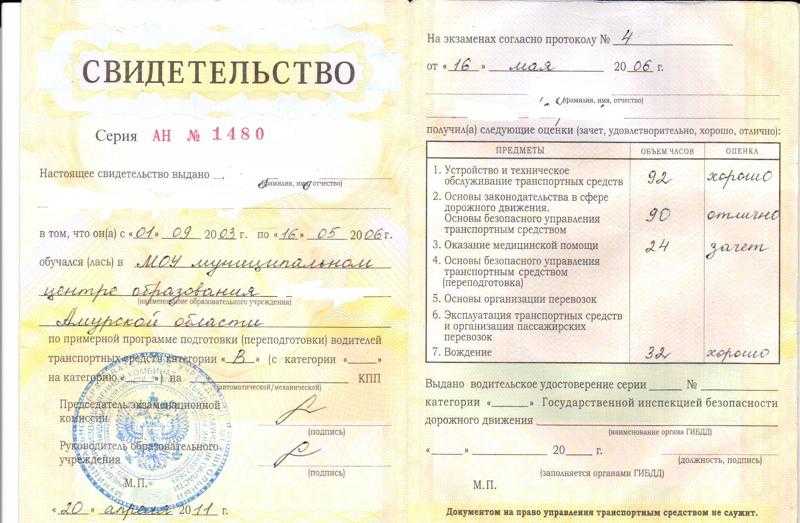 СВИДЕТЕЛЬСТВО
Серия АН № 1480
Настоящее свидетельство выдано
(фамилия, имя, отчество)
в том, что он(а) с «01» 09 2003 г. по «16» 05 2006 г.
обучался (лась) в МОУ муниципальном
центре образования
(наименование образовательного учреждения)
Амурской области
по примерной программе подготовки (переподготовки) водителей
транспортных средств категории «В» (с категории «____»
на категорию «____») на ________ КПП
(автоматической/механической)
Председатель экзаменационной
комиссии
(подпись)
Руководитель образовательного
учреждения
(подпись)
М.П.
«20» апреля 2011 г.
На экзаменах согласно протоколу № 4
от «16» мая 2006 г.
(фамилия, имя, отчество)
получил(а) следующие оценки (зачет, удовлетворительно, хорошо, отлично):
ПРЕДМЕТЫ ОБЪЕМ ЧАСОВ ОЦЕНКА
1. Устройство и техническое
обслуживание транспортных средств 92 хорошо
2. Основы законодательства в сфере
дорожного движения.
Основы безопасного управления
транспортным средством 90 отлично
3. Оказание медицинской помощи 24 зачет
4. Основы безопасного управления
транспортным средством
(переподготовка)
5. Основы организации перевозок
6. Эксплуатация транспортных средств
и организация пассажирских
перевозок
7. Вождение 32 хорошо
Выдано водительское удостоверение серии ____ № ________
категории «____» Государственной инспекцией безопасности
дорожного движения
(наименование органа ГИБДД)
«____» ________ 20____ г.
(должность, подпись)
(заполняется органами ГИБДД)
М.П.
Документом на право управления транспортным средством не служит.